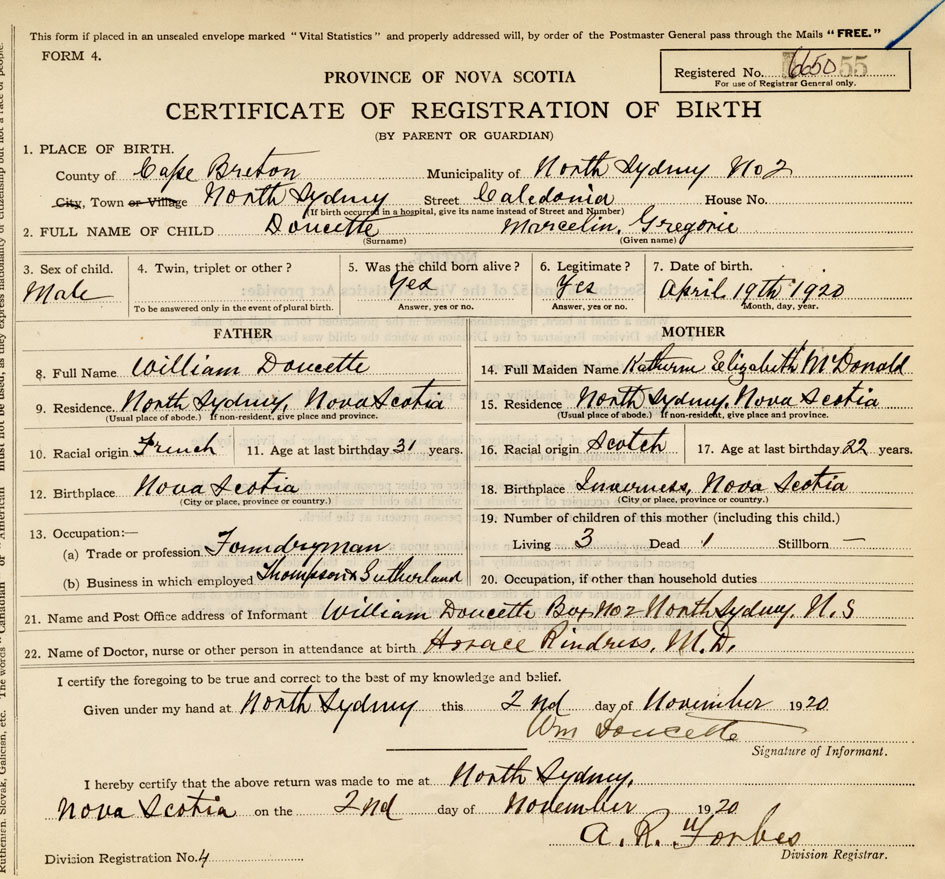 This form if placed in an unsealed envelope marked "Vital Statistics" and properly addressed will, by order of the Postmaster General pass through the Mails "FREE."
FORM 4.
Registered No. 6650 55
For use of Registrar General only.
PROVINCE OF NOVA SCOTIA
CERTIFICATE OF REGISTRATION OF BIRTH
(BY PARENT OR GUARDIAN)
1. PLACE OF BIRTH.
County of Cape Breton Municipality of North Sydney No 2
City, Town or Village North Sydney Street Caledonia House No.
(If birth occurred in a hospital, give its name instead of Street and Number)
2. FULL NAME OF CHILD Doucette Marcelin, Gregorie
(Surname) (Given name)
3. Sex of child. 4. Twin, triplet or other? 5. Was the child born alive? 6. Legitimate? 7. Date of birth.
Male Yes Yes April 19th 1920
To be answered only in the event of plural birth. Answer, yes or no. Answer, yes or no. Month, day, year.
FATHER MOTHER
8. Full Name William Doucette 14. Full Maiden Name Katherine Elizabeth McDonald
9. Residence North Sydney, Nova Scotia 15. Residence North Sydney, Nova Scotia
(Usual place of abode.) If non-resident, give place and province. (Usual place of abode.) If non-resident, give place and province.
10. Racial origin French 11. Age at last birthday 31 years. 16. Racial origin Scotch 17. Age at last birthday 22 years.
12. Birthplace Nova Scotia 18. Birthplace Inverness, Nova Scotia
(City or place, province or country.) (City or place, province or country.)
13. Occupation:— 19. Number of children of this mother (including this child.)
(a) Trade or profession Foundryman Living 3 Dead 1 Stillborn —
(b) Business in which employed Thompson & Sutherland 20. Occupation, if other than household duties
21. Name and Post Office address of Informant William Doucette Box No 2 North Sydney, N. S
22. Name of Doctor, nurse or other person in attendance at birth Horace Rindress, M.D.
I certify the foregoing to be true and correct to the best of my knowledge and belief.
Given under my hand at North Sydney this 2nd day of November 1920
Wm Doucette
Signature of Informant.
I hereby certify that the above return was made to me at North Sydney,
Nova Scotia on the 2nd day of November 1920
A. R. Forbes
Division Registration No. 4 Division Registrar.